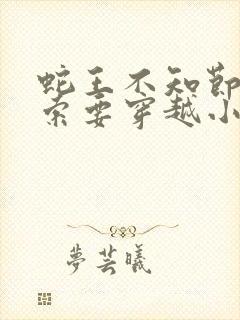 蛇王不知節
索要穿越小
夢芸曦